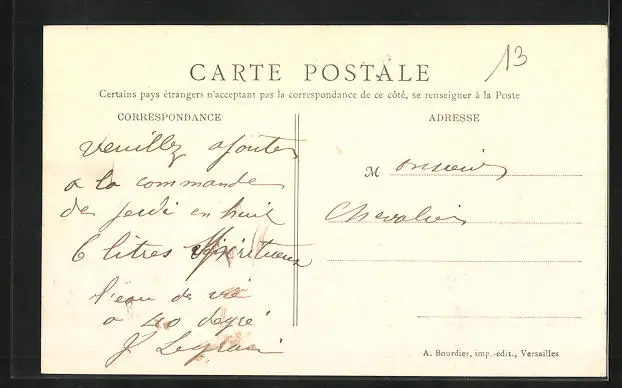 13
CARTE POSTALE
Certains pays étrangers n'acceptant pas la correspondance de ce côté, se renseigner à la Poste
CORRESPONDANCE
ADRESSE
veuillez ajouter
a la commande
de jeudi en huit
6 litres Spiritueux
l'eau de vie
a 40 degré
Monsieur
Chevalier
A. Bourdier, imp.-édit., Versailles